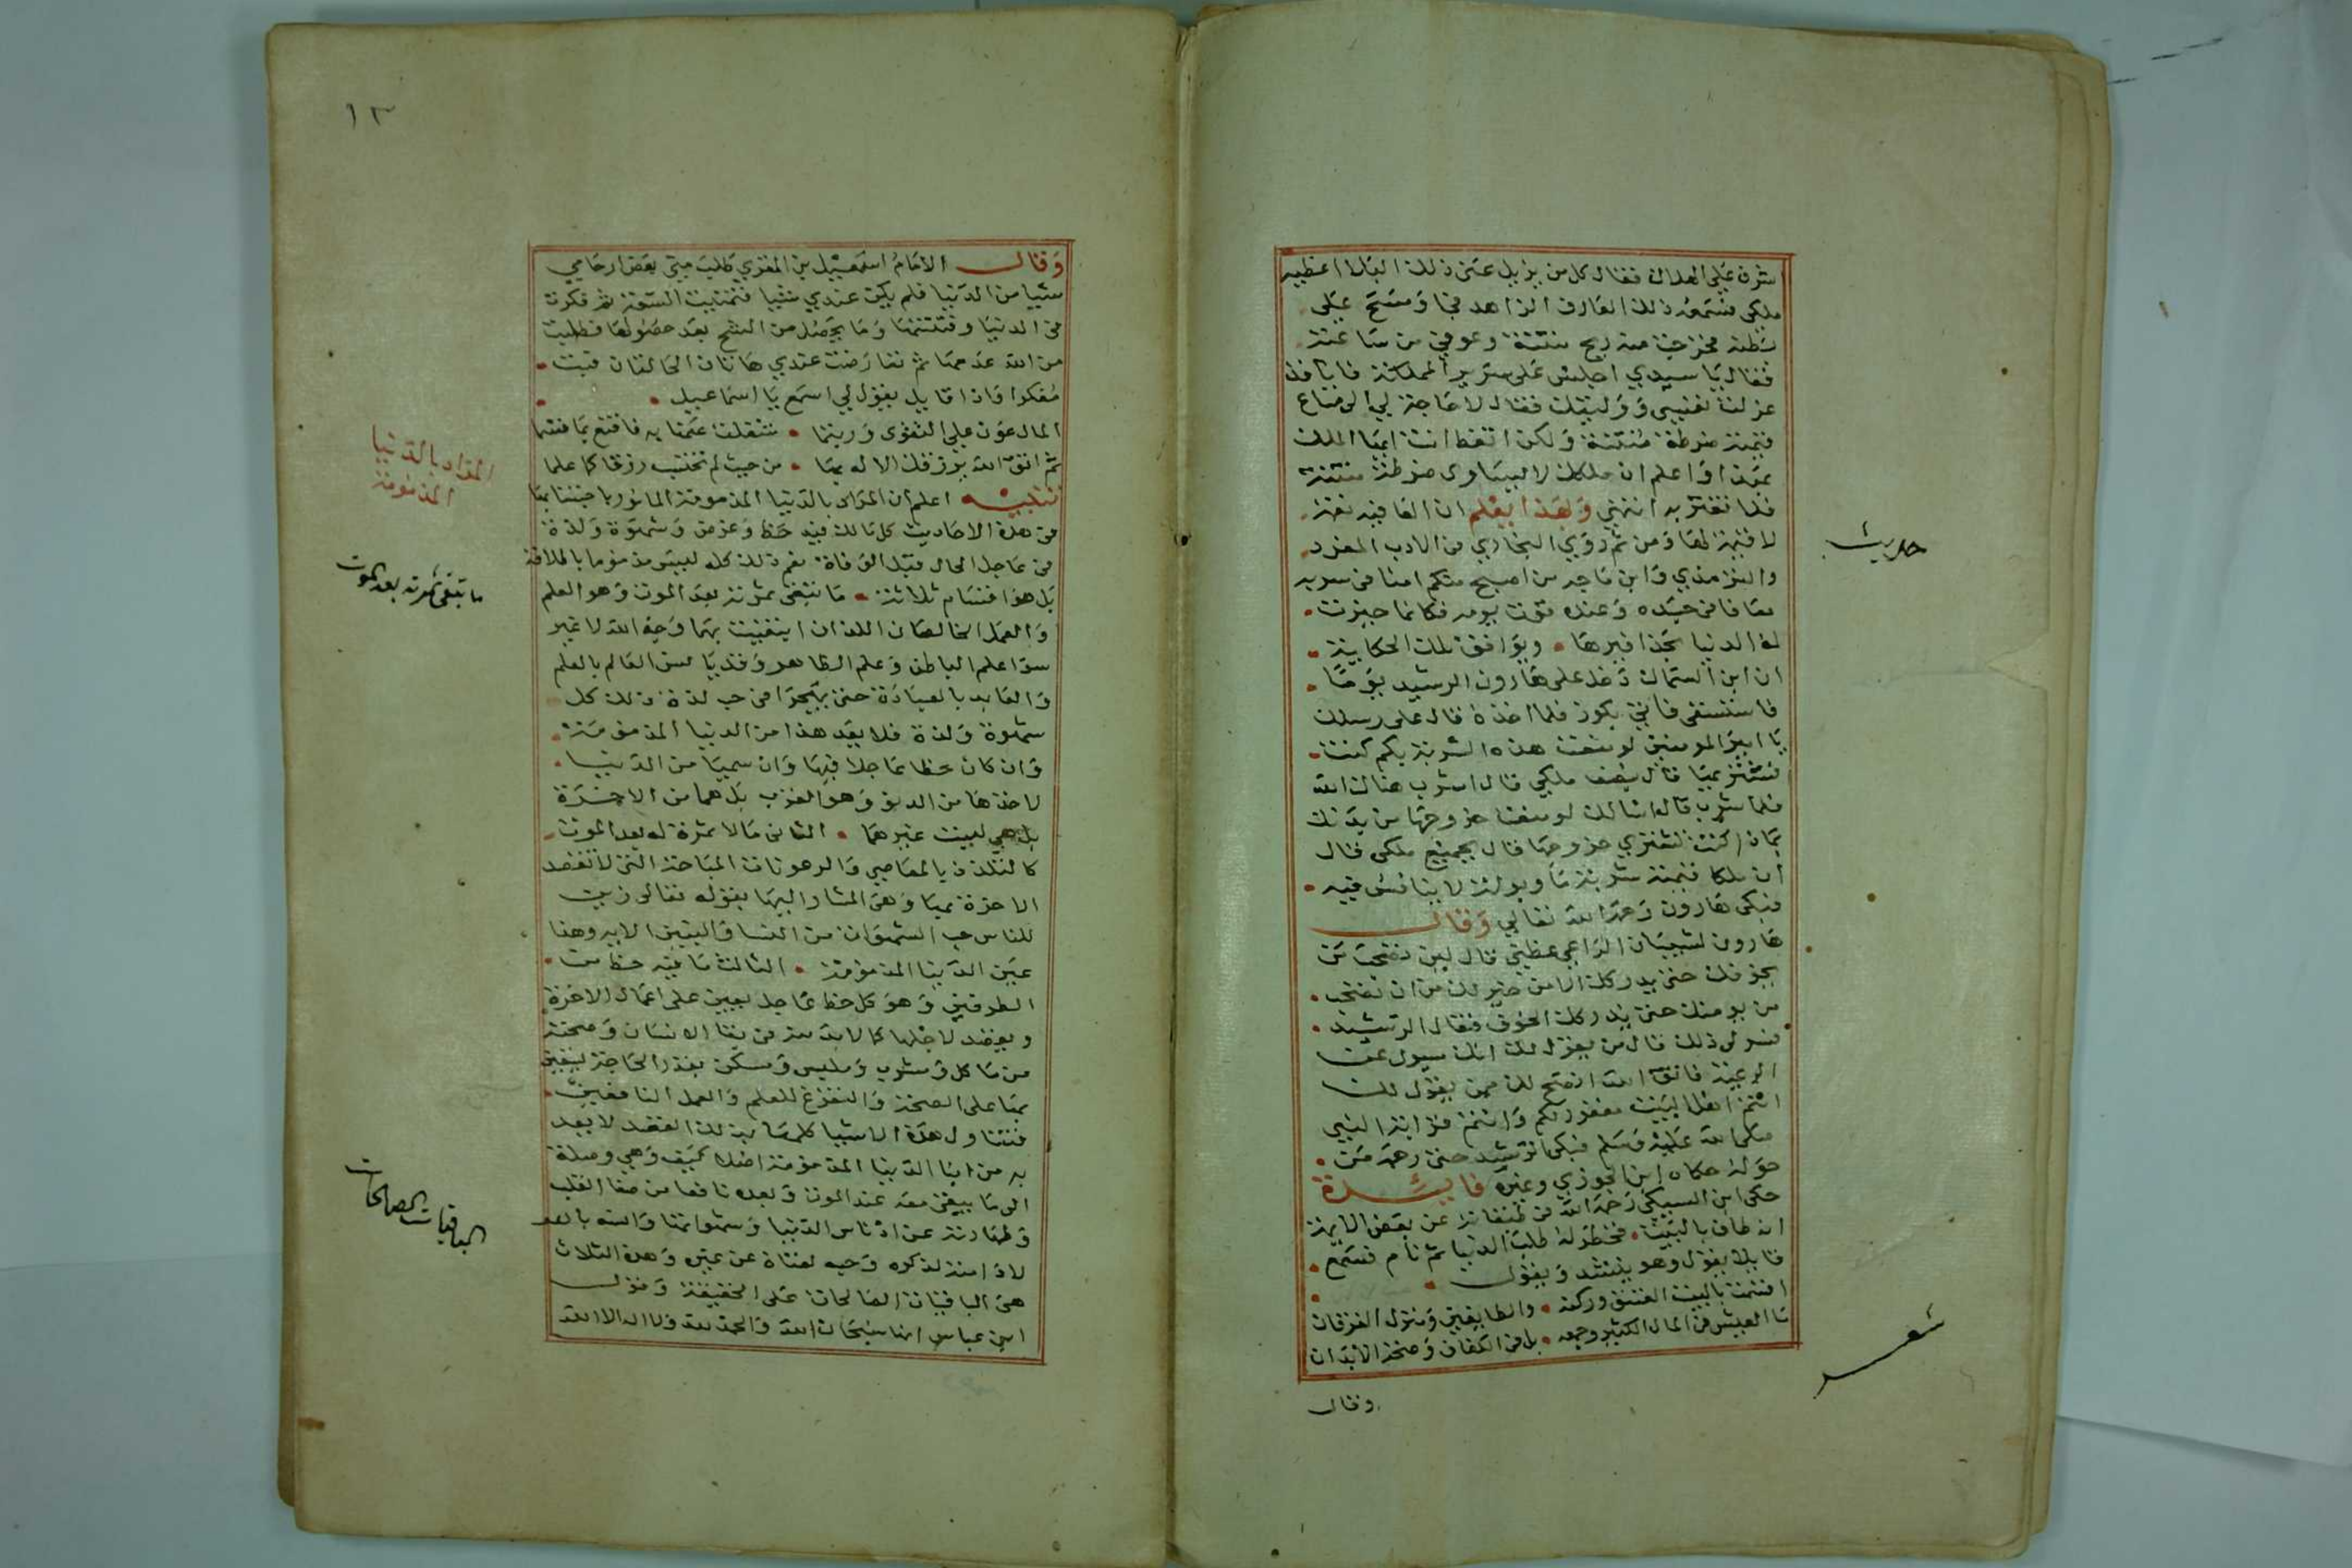 اشرف على الهلاك فقال كل من يزيل عني ذلك البلا اعظيه
ملكي فسمعه ذلك العارف الزاهد فجا ومسح على
بطنه فخرجت منه ريح منتنة وعوفي من ساعته
فقال يا سيدي اجلس على سرير المملكة فانا قد
عزلت نفسي ووليتك فقال لا حاجة لي الى متاع
قيمته ضرطة منتنة ولكن اتعظ انت ايها الملك
واعلم ان ملكك لا يساوى ضرطة منتنة
فلا تغتر به انتهى وبهذا يعلم ان العافية نعمة
لا قيمة لها ومن ثم روي البخاري في الادب المفرد
والترمذي وابن ماجه من اصبح منكم امنا في سربه
معافا في جسده وعنده قوت يومه فكانما حيزت
له الدنيا بحذافيرها • ويوافق تلك الحكاية
ان ابن السماك دخل على هارون الرشيد يوما
فاستسقى فاتي بكوز فلما اخذه قال على رسلك
يا امير المومنين لو منعت هذه الشربة بكم كنت
تشتريها قال بنصف ملكي قال اشرب هناك الله
فلما شرب قال اسالك لو منعت خروجها من بدنك
بماذا كنت تشتري خروجها قال بجميع ملكي فقال
ان ملكا قيمته شربة ما وبوله لا ينافس فيه
فبكى هارون رحمه الله تعالي وقال
هارون لشيبان الراعي عظني قال لين تصحب من
يخوفك حتى يدركك الامن خير لك من ان تصحب
من يومنك حتى يدركك الخوف فقال الرشيد
فسر لي ذلك قال من يقول لك انك مسول عن
الرعية فاتق الله انصح لك ممن يقول لك
انتم اهل البيت مغفور لكم وانتم قرابة النبي
صلى الله عليه وسلم فبكى الرشيد حتى رحمه من
حوله حكاه ابن الجوزي وغيره فايدة
حكى ابن السبكي رحمه الله في طبقاته عن بعض الايمة
انه طاف بالبيت • فخطر له طلب الدنيا ثم نام فسمع
قايلا يقول وهو ينشد ويقول
اقسمت بالبيت العتيق وركنه • والطايفين ومنزل الفرقان
ما العيش في المال الكثير وجمعه • بل في الكفاف وصحة الابدان
وقال
حديث
شعر
١٣
وقال الامام اسمعيل بن المقري طلب مني بعض ارحامي
شيا من الدنيا فلم يكن عندي شيا فتمنيت السعة ثم فكرت
في الدنيا وفتنتها وما يحصل من الشح بعد حصولها فطلبت
من الله عدمها ثم تعارضت عندي هاتان الحالتان فبت
مفكرا فاذا قايل يقول لي اسمع يا اسماعيل
المال عون على التقوى وربما • شغلت عنها به فاقنع بما قسما
ثم اتق الله يرزقك الاله بها • من حيث لم تحتسب رزقا كما علما
تنبيه اعلم ان المراد بالدنيا المذمومة المامور باجتنابها
في هذه الاحاديث كل مالك فيه حظ وغرض وشهوة ولذة
في عاجل الحال قبل الوفاة نعم ذلك كله ليس مذموما بالاطلاق
بل هو اقسام ثلاثة • ما تبقى ثمرته بعد الموت وهو العلم
والعمل الخالصان اللذان ابتغيت بهما وجه الله لا غير
سوا علم الباطن وعلم الظاهر وقد يانس العالم بالعلم
والعابد بالعبادة حتى يهجرا في حب لذة ذلك كل
شهوة ولذة فلا يعد هذا من الدنيا المذمومة
وان كان حظا عاجلا فيها وان سميا من الدنيا
لاخذها من الدنو وهو القرب بل هما من الاخرة
بل هي ليست غيرهما • الثاني ما لا ثمرة له بعد الموت
كالتلذذ بالمعاصي والرعونات المباحة التي لا تقصد
الاخرة بها وهي المشار اليها بقوله تعالى زين
للناس حب الشهوات من النسا والبنين الاية وهذا
عين الدنيا المذمومة • الثالث ما فيه حظ من
الطرفين وهو كل حظ عاجل يعين على اعمال الاخرة
ويقصد لاجلها كما لا بد منه في بقا الانسان وصحته
من ماكل ومشرب وملبس ومسكن بقدر الحاجة ليتعين
بها على الصحة والتفرغ للعلم والعمل النافعين
فتناول هذه الاشيا كلها بذلك القصد لا يعد
به من ابنا الدنيا المذمومة اصلا كيف وهي وصلة
الى ما يبقى معه عند الموت وبعده نافعا من صفا القلب
وطهارته عن ادناس الدنيا وشهواتها وانسه بالله
لادامة ذكره وحبه لفناه عن غيره وهذه الثلاث
هي الباقيات الصالحات على الحقيقة وقول
ابن عباس انها سبحان الله والحمد لله ولا اله الا الله
المراد بالدنيا
المذمومة
ما تبقى ثمرته بعد الموت
الباقيات الصالحات